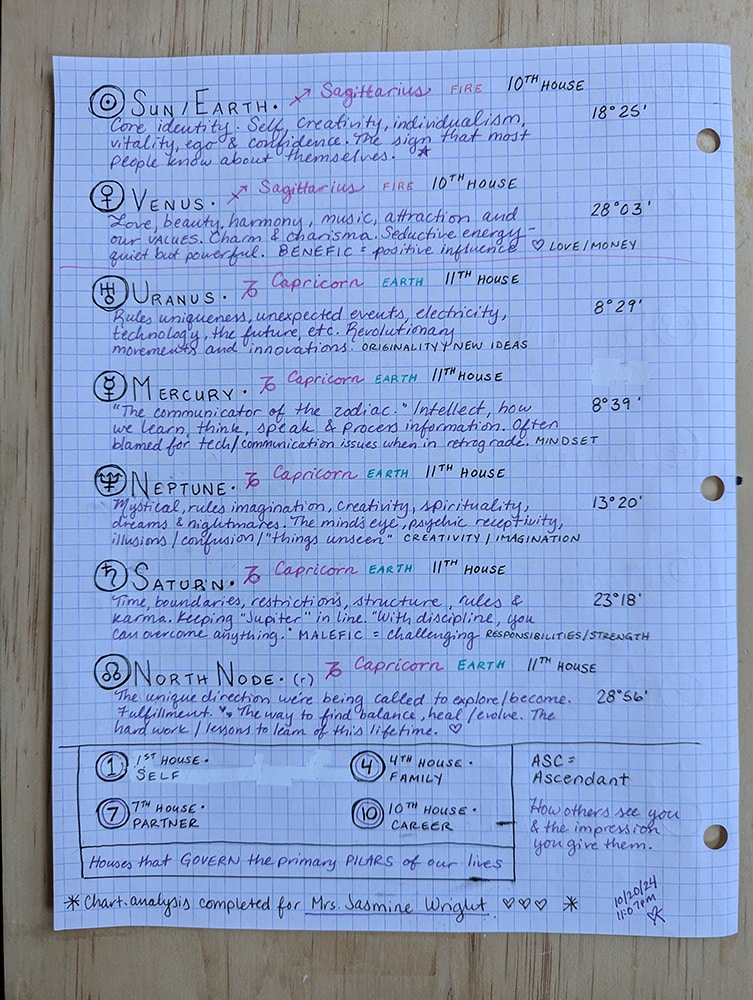 ☉ SUN/EARTH. ♐ Sagittarius FIRE 10TH HOUSE
18°25'
Core identity. Self, creativity, individualism,
vitality, ego & confidence. The sign that most
people know about themselves. ☆
♀ VENUS. ♐ Sagittarius FIRE 10TH HOUSE
28°03'
Love, beauty, harmony, music, attraction and
our VALUES. Charm & charisma. Seductive energy -
quiet but powerful. BENEFIC = positive influence ♡ LOVE/MONEY
♅ URANUS. ♑ Capricorn EARTH 11TH HOUSE
8°29'
Rules uniqueness, unexpected events, electricity,
technology, the future, etc. Revolutionary
movements and innovations. ORIGINALITY/NEW IDEAS
☿ MERCURY. ♑ Capricorn EARTH 11TH HOUSE
8°39'
"The communicator of the zodiac." Intellect, how
we learn, think, speak & process information. Often
blamed for tech/communication issues when in retrograde. MINDSET
♆ NEPTUNE. ♑ Capricorn EARTH 11TH HOUSE
13°20'
Mystical, rules imagination, creativity, spirituality,
dreams & nightmares. The mind's eye, psychic receptivity,
illusions/confusion/"things unseen" CREATIVITY/IMAGINATION
♄ SATURN. ♑ Capricorn EARTH 11TH HOUSE
23°18'
Time, boundaries, restrictions, structure, rules &
karma. Keeping "Jupiter" in line. "With discipline, you
can overcome anything." MALEFIC = challenging RESPONSIBILITIES/STRENGTH
☊ NORTH NODE. (r) ♑ Capricorn EARTH 11TH HOUSE
28°56'
The unique direction we're being called to explore/become.
Fulfillment. ♥ The way to find balance, heal/evolve. The
hard work/lessons to learn of this lifetime. ♡
1 1ST HOUSE.
SELF
4 4TH HOUSE.
FAMILY
7 7TH HOUSE.
PARTNER
10 10TH HOUSE.
CAREER
Houses that GOVERN the primary PILARS of our lives
ASC =
Ascendant
How others see you
& the impression
you give them.
* Chart analysis completed for Mrs. Jasmine Wright ♡♡♡ *
10/20/24
11:07pm